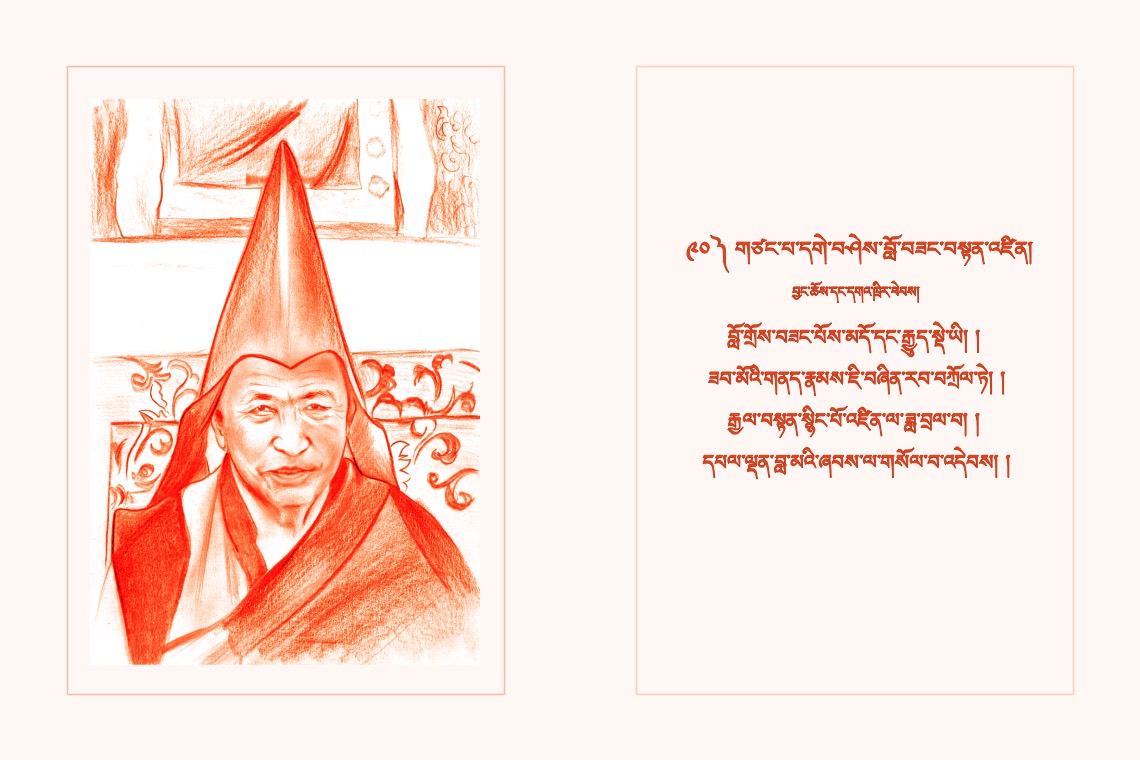 ༩༠ ༽ གཙང་པ་དགེ་བཤེས་བློ་བཟང་བསྟན་འཛིན།
བྱང་ཆོས་དང་དགའ་ཁྲིར་ཕེབས།
བློ་གྲོས་བཟང་པོས་མདོ་དང་རྒྱུད་སྡེ་ཡི། །
ཟབ་མོའི་གནད་རྣམས་ཇི་བཞིན་རབ་བཀྲོལ་ཏེ། །
རྒྱལ་བསྟན་སྙིང་པོ་འཛིན་ལ་ཟླ་བྲལ་བ། །
དཔལ་ལྡན་བླ་མའི་ཞབས་ལ་གསོལ་བ་འདེབས། །